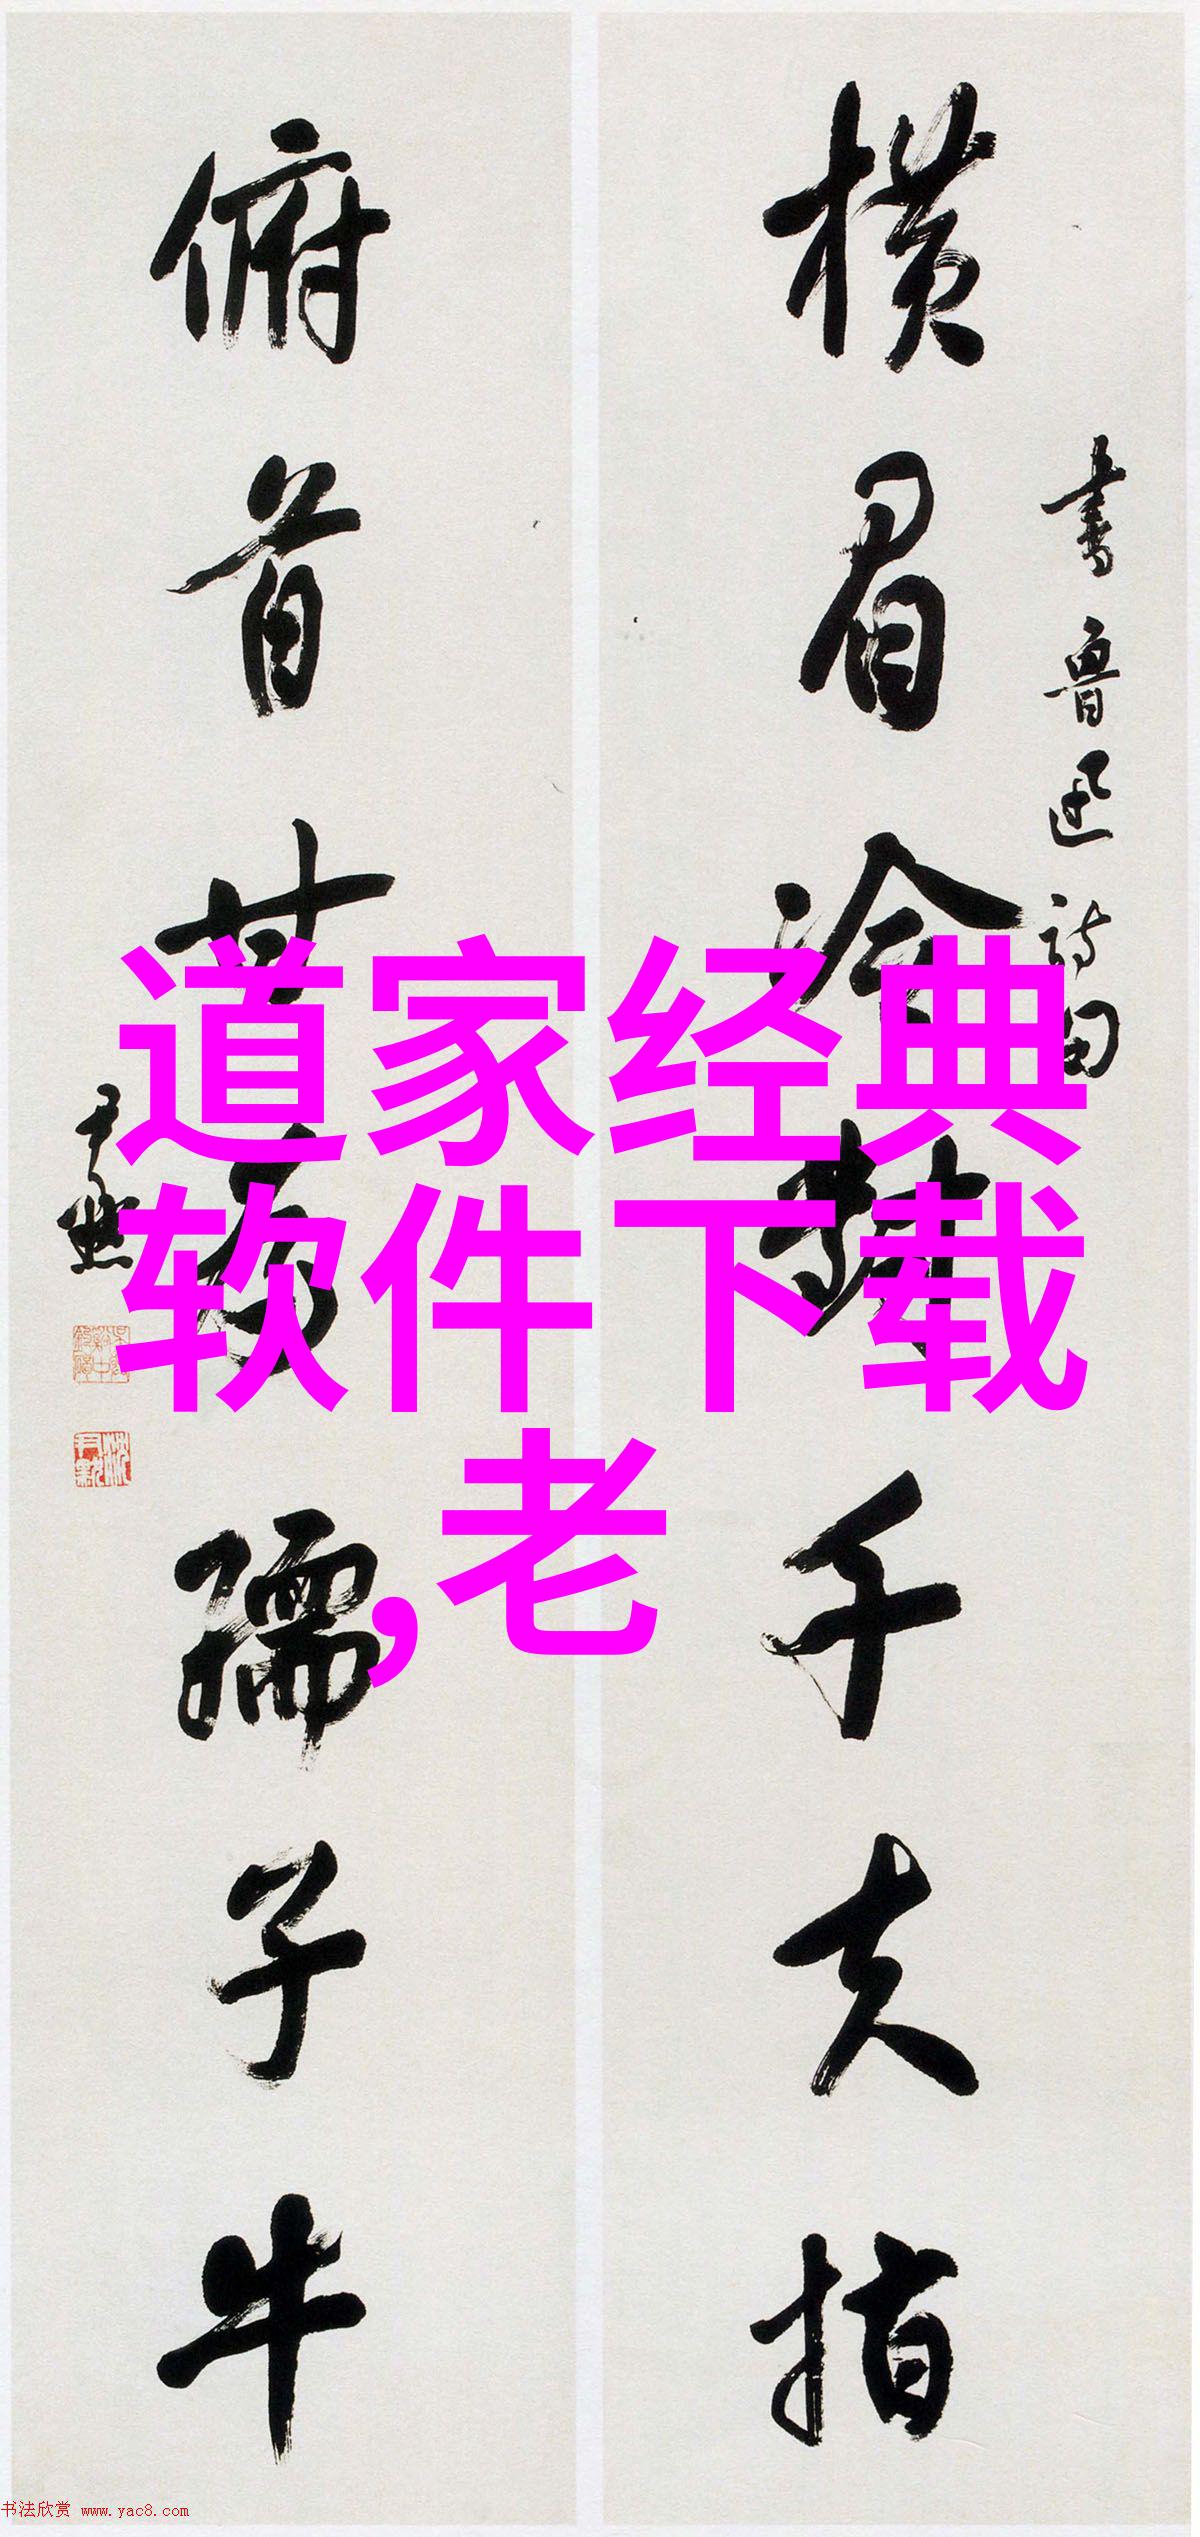 書魯迅詩句
横眉冷對千夫指
俯首甘為孺子牛
尹默
道家经典
软件下载
,老
书法欣赏 www.yac8.com